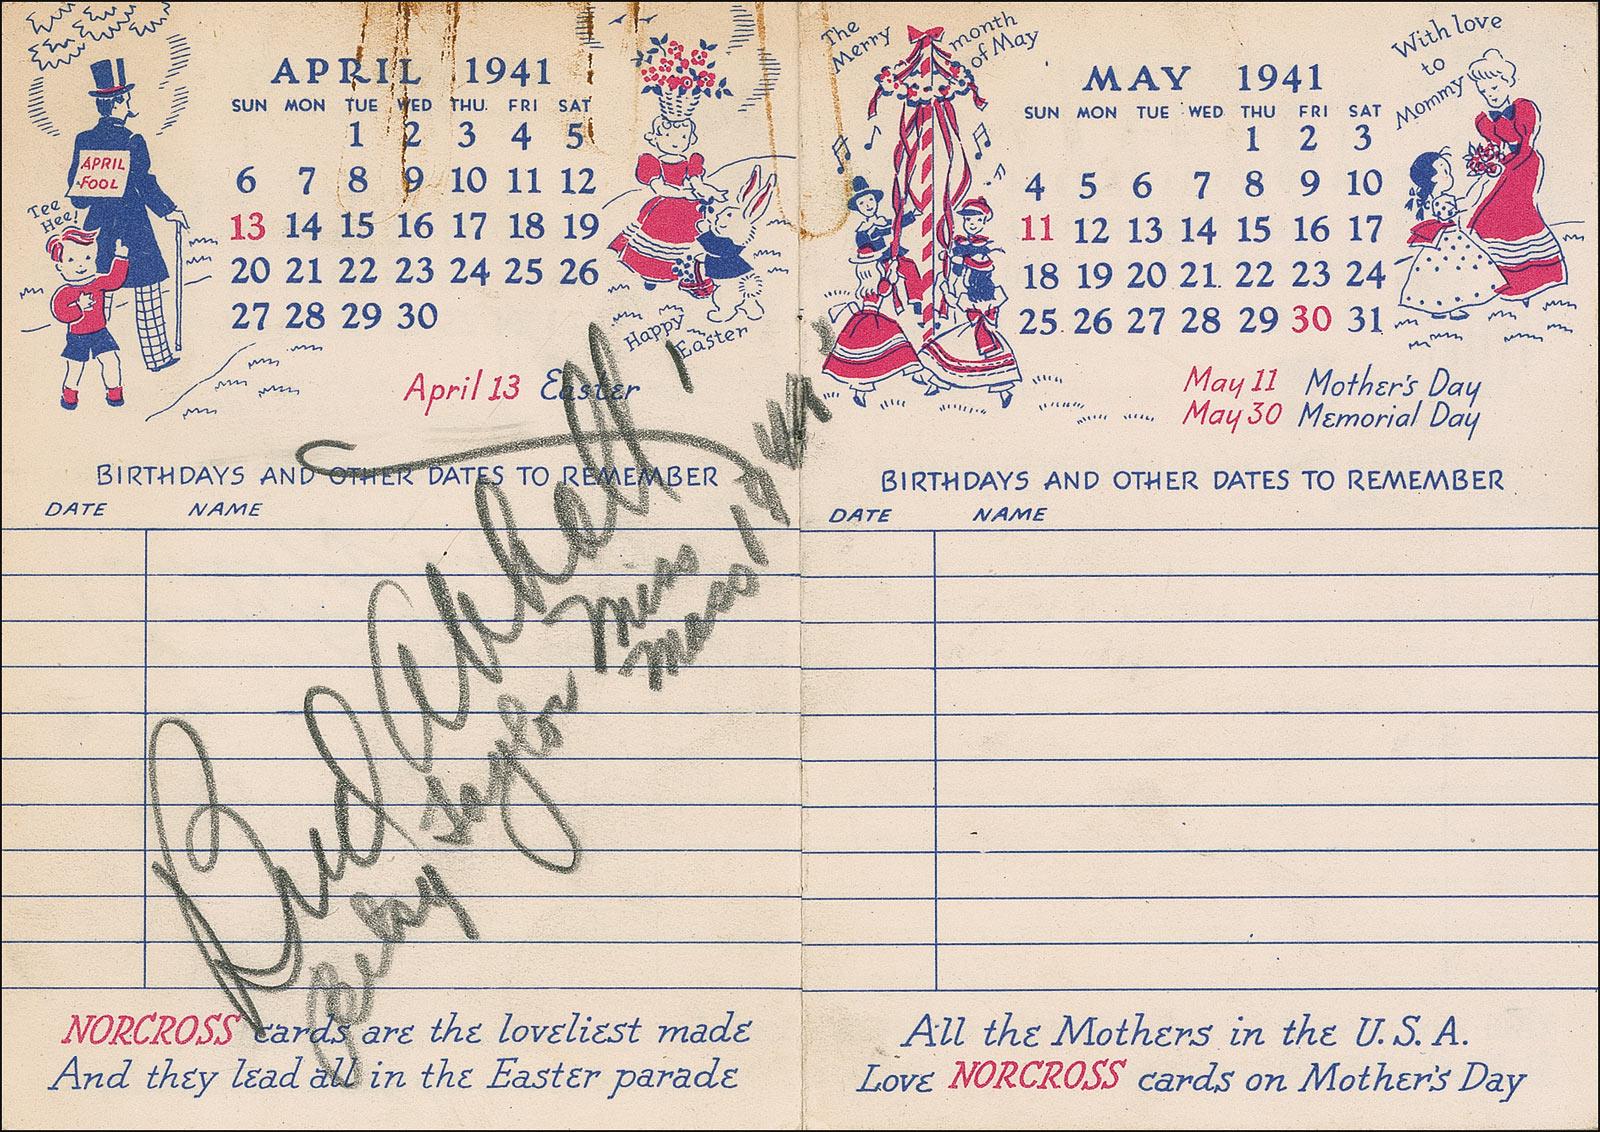 APRIL 1941
SUN MON TUE WED THU. FRI SAT
1 2 3 4 5
6 7 8 9 10 11 12
13 14 15 16 17 18 19
20 21 22 23 24 25 26
27 28 29 30
APRIL
FOOL
Tee
Hee!
Happy
Easter
April 13 Easter
BIRTHDAYS AND OTHER DATES TO REMEMBER
DATE NAME
Bud Abbott
Taylor
Miss
NORCROSS cards are the loveliest made
And they lead all in the Easter parade
The
Merry
month
of May
MAY 1941
SUN MON TUE WED THU FRI SAT
1 2 3
4 5 6 7 8 9 10
11 12 13 14 15 16 17
18 19 20 21 22 23 24
25 26 27 28 29 30 31
With love
to
Mommy
May 11 Mother's Day
May 30 Memorial Day
BIRTHDAYS AND OTHER DATES TO REMEMBER
DATE NAME
All the Mothers in the U.S.A.
Love NORCROSS cards on Mother's Day